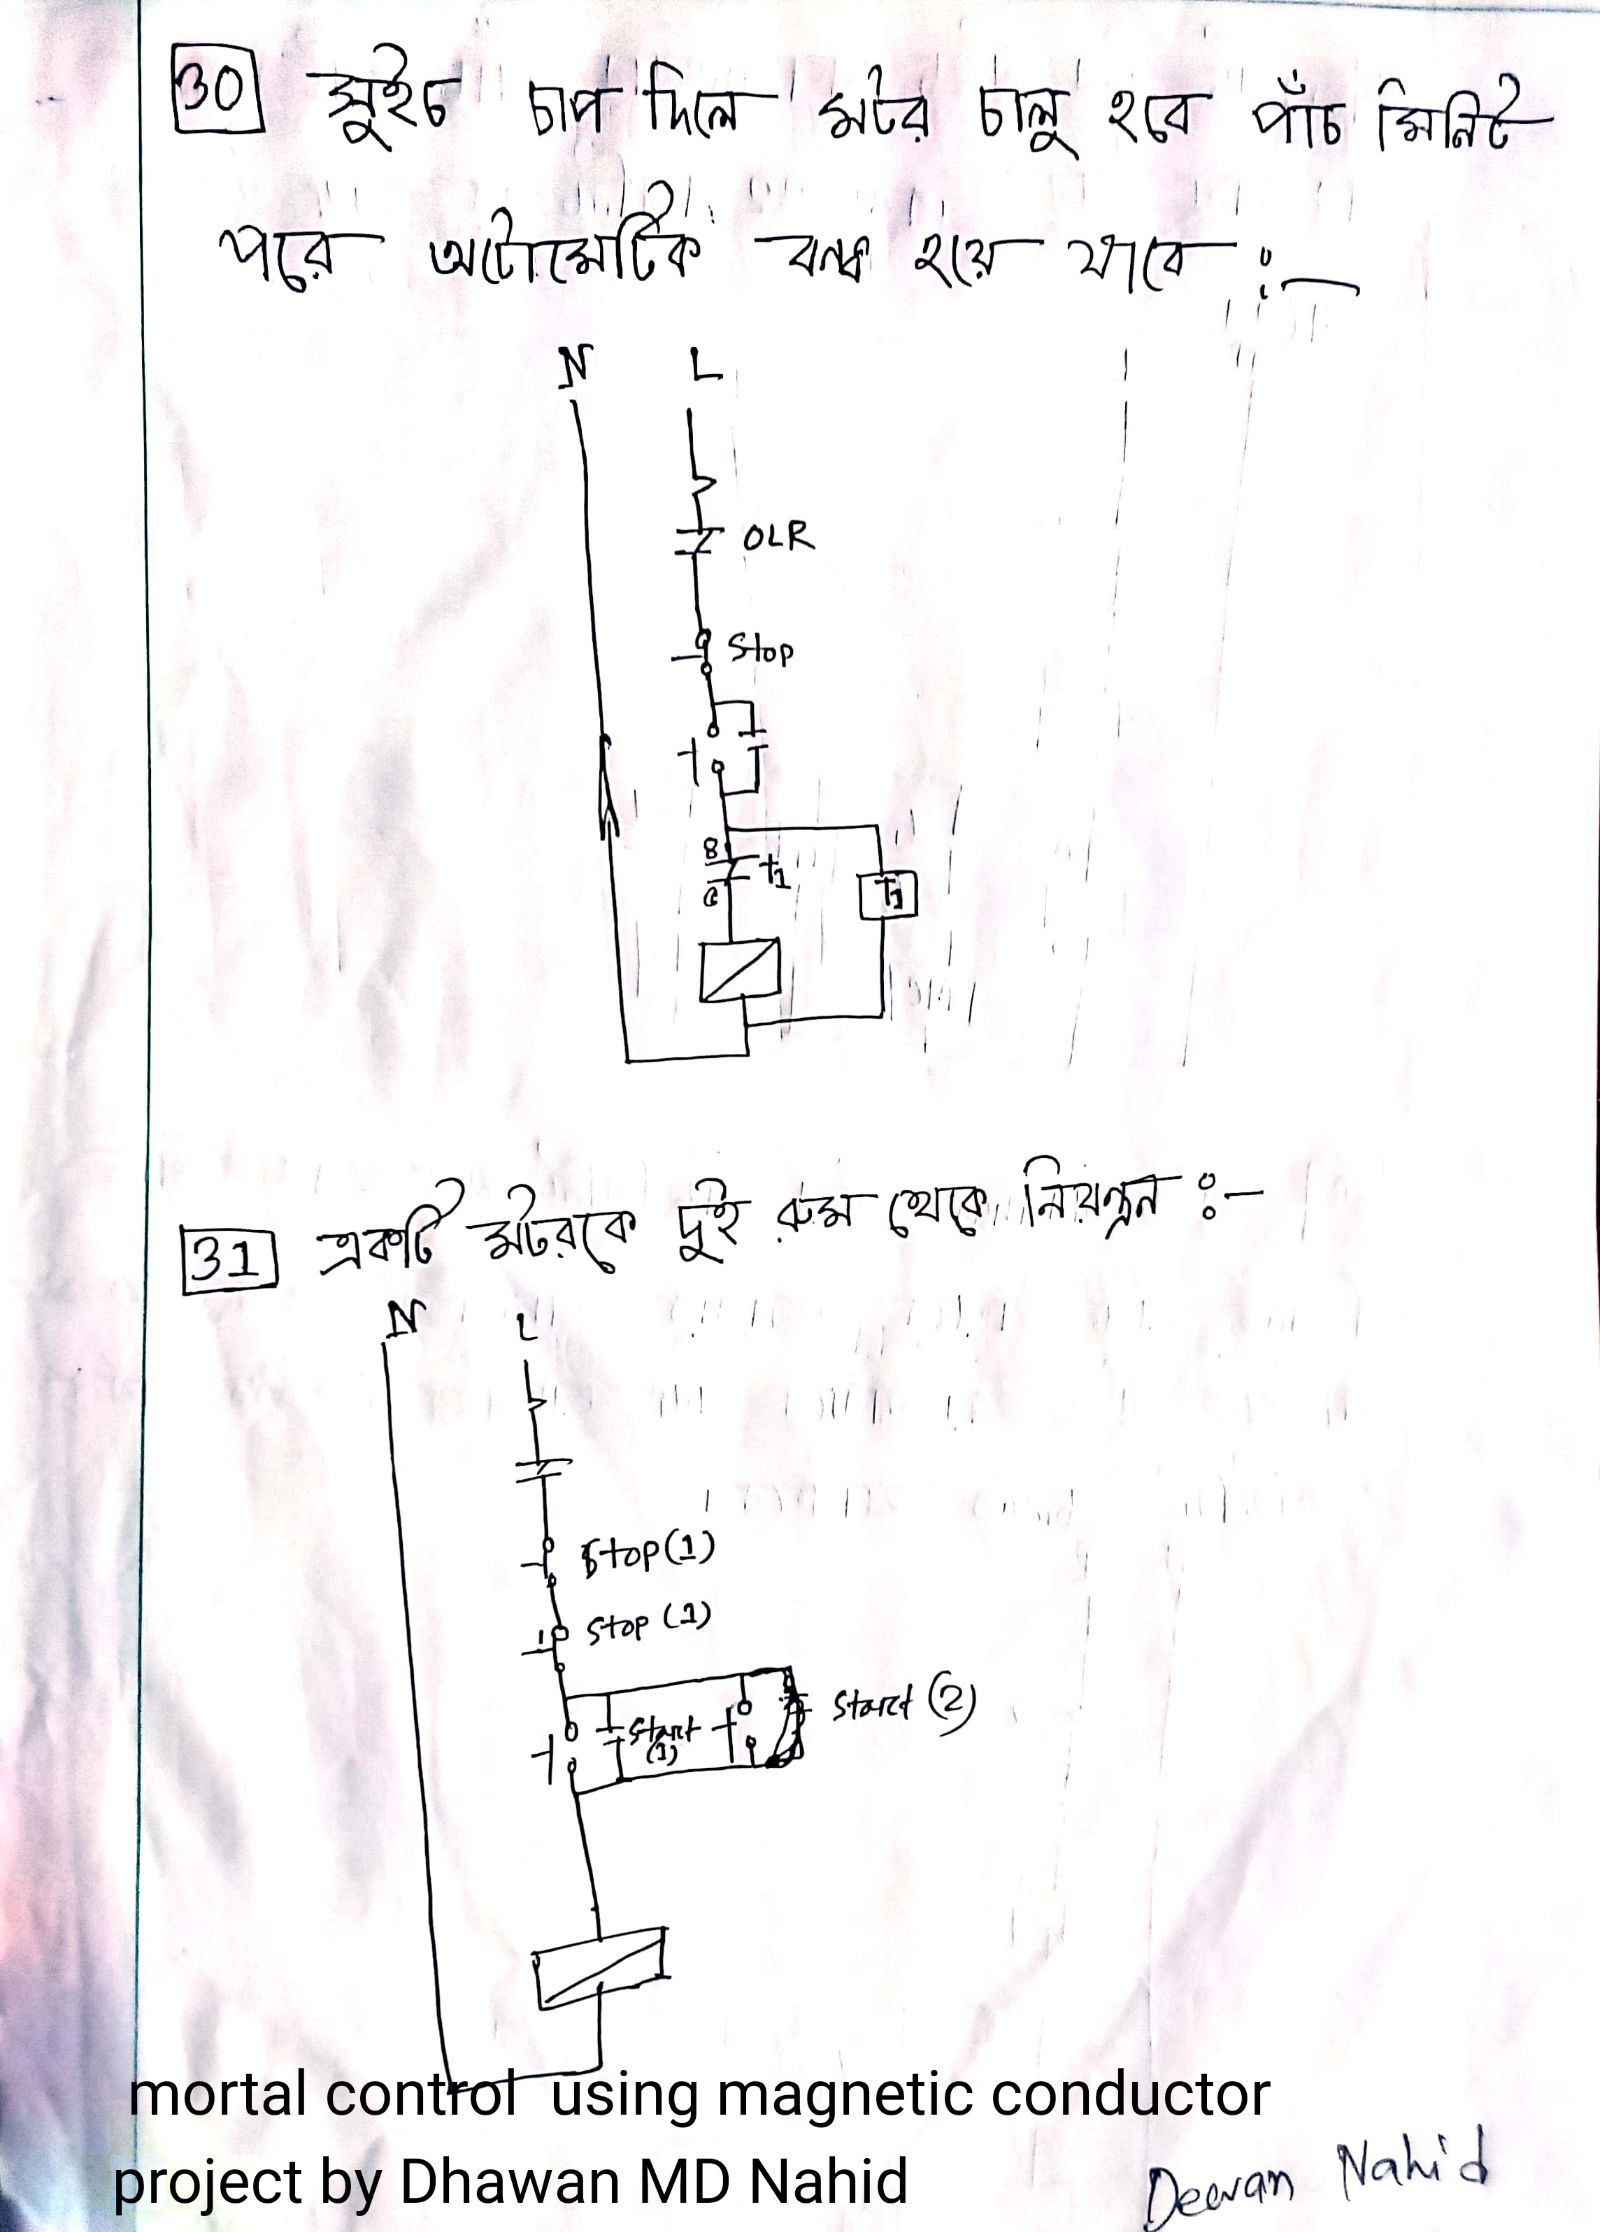 30 সুইচ চাপ দিলে মটর চালু হবে পাঁচ মিনিট
পরে অটোমেটিক বন্ধ হয়ে যাবে :-
N L
OLR
Stop
8
t1
6
T1
31 একটি মটরকে দুই রুম থেকে নিয়ন্ত্রন :-
N L
Stop(1)
Stop (1)
Start (2)
Start
(1)
mortal control using magnetic conductor
project by Dhawan MD Nahid
Deevan Nahid